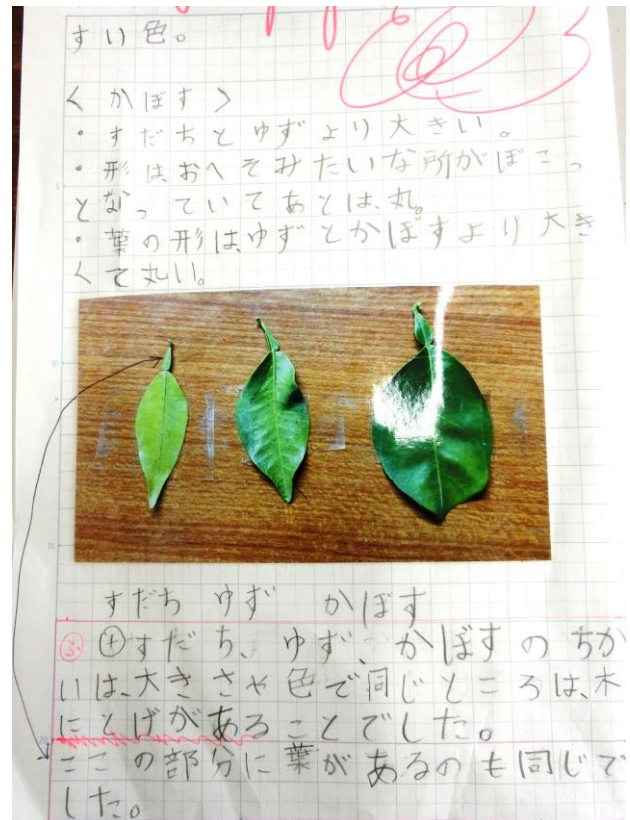 すい色。
<かぼす>
・すだちとゆずより大きい。
・形は、おへそみたいな所がぼこっ
となっていてあとは、丸。
・葉の形は、ゆずとかぼすより大き
くて丸い。
5
10
15
すだち ゆず かぼす
ふ ⊕すだち、ゆず、かぼすのちか
いは、大きさや色で同じところは、木
にとげがあることでした。
20
ここの部分に葉があるのも同じで
した。